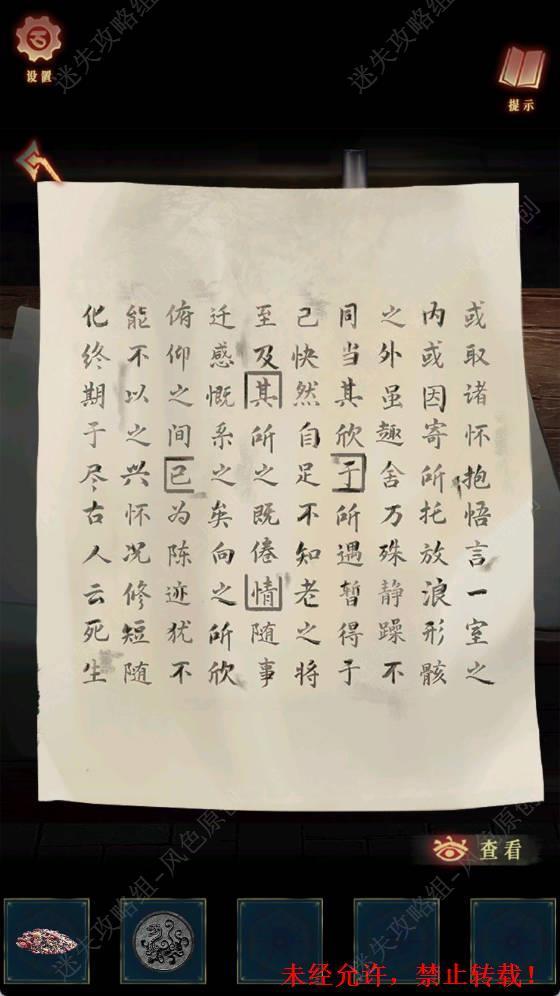 设置
提示
或取诸怀抱悟言一室之
内或因寄所托放浪形骸
之外虽趣舍万殊静躁不
同当其欣于所遇暂得于
己快然自足不知老之将
至及其所之既倦情随事
迁感慨系之矣向之所欣
俯仰之间已为陈迹犹不
能不以之兴怀况修短随
化终期于尽古人云死生
查看
迷失攻略组-风色原创
未经允许，禁止转载！